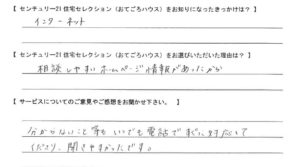 【 センチュリー21 住宅セレクション（おてごろハウス）をお知りになったきっかけは？ 】
インターネット
【 センチュリー21 住宅セレクション（おてごろハウス）をお選びいただいた理由は？ 】
相談しやすいホームページ情報があったから
【 サービスについてのご意見やご感想をお聞かせ下さい。 】
分からないこと等もいつでも電話ですぐに対応して
くださり、聞きやすかったです。